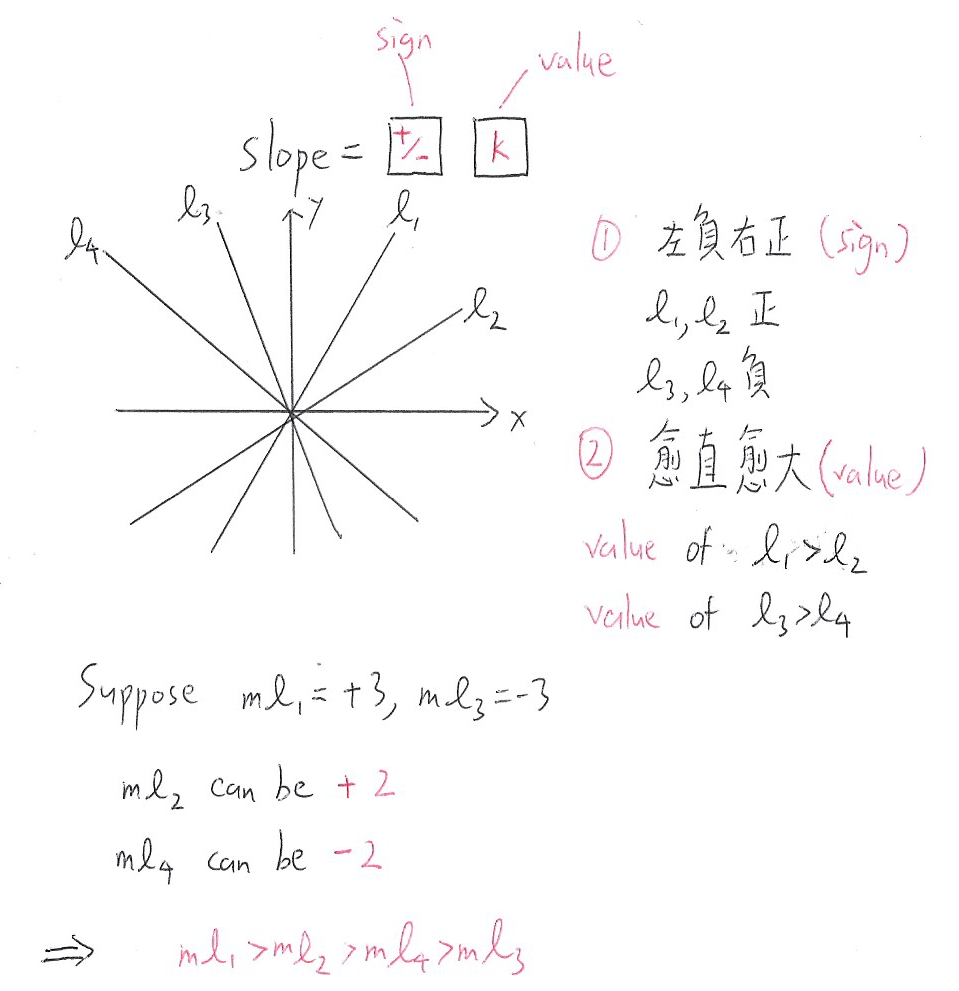 sign
value
slope = +/- k
l₃ y l₁
l₄
l₂
x
① 左負右正 (sign)
l₁, l₂ 正
l₃, l₄ 負
② 愈直愈大 (value)
value of l₁>l₂
value of l₃>l₄
Suppose ml₁=+3, ml₃=-3
ml₂ can be +2
ml₄ can be -2
⇒ ml₁>ml₂>ml₄>ml₃